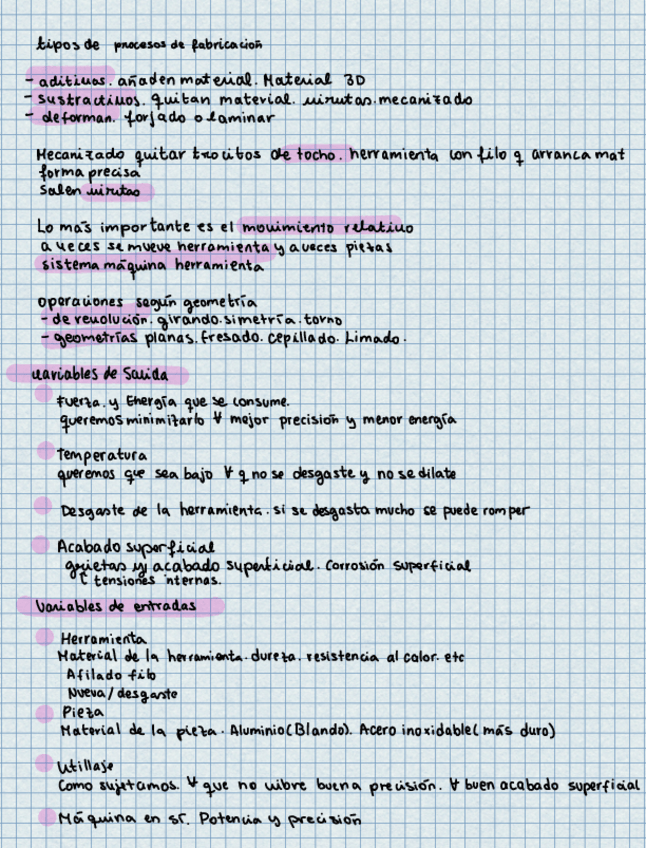 tipos de procesos de fabricación
- aditivos. añaden material. Material 3D
- sustractivos. quitan material. virutas. mecanizado
- deforman. forjado o laminar
Mecanizado quitar trocitos de tocho. herramienta con filo q arranca mat
forma precisa
Salen virutas
Lo más importante es el movimiento relativo
a veces se mueve herramienta y a veces piezas
sistema máquina herramienta
operaciones según geometría
- de revolución. girando. simetría. torno
- geometrías planas. fresado. cepillado. Limado.
variables de Salida
Fuerza. y Energía que se consume.
queremos minimizarlo ∀ mejor precisión y menor energía
Temperatura
queremos que sea bajo ∀ q no se desgaste y no se dilate
Desgaste de la herramienta. si se desgasta mucho se puede romper
Acabado superficial
grietas y acabado superficial. Corrosión superficial
tensiones internas.
Variables de entradas
Herramienta
Material de la herramienta. dureza. resistencia al calor. etc
Afilado filo
Nueva/desgaste
Pieza
Material de la pieza. Aluminio (Blando). Acero inoxidable (más duro)
Utillaje
Como sujetamos. ∀ que no vibre buena precisión. ∀ buen acabado superficial
Máquina en sí. Potencia y precisión